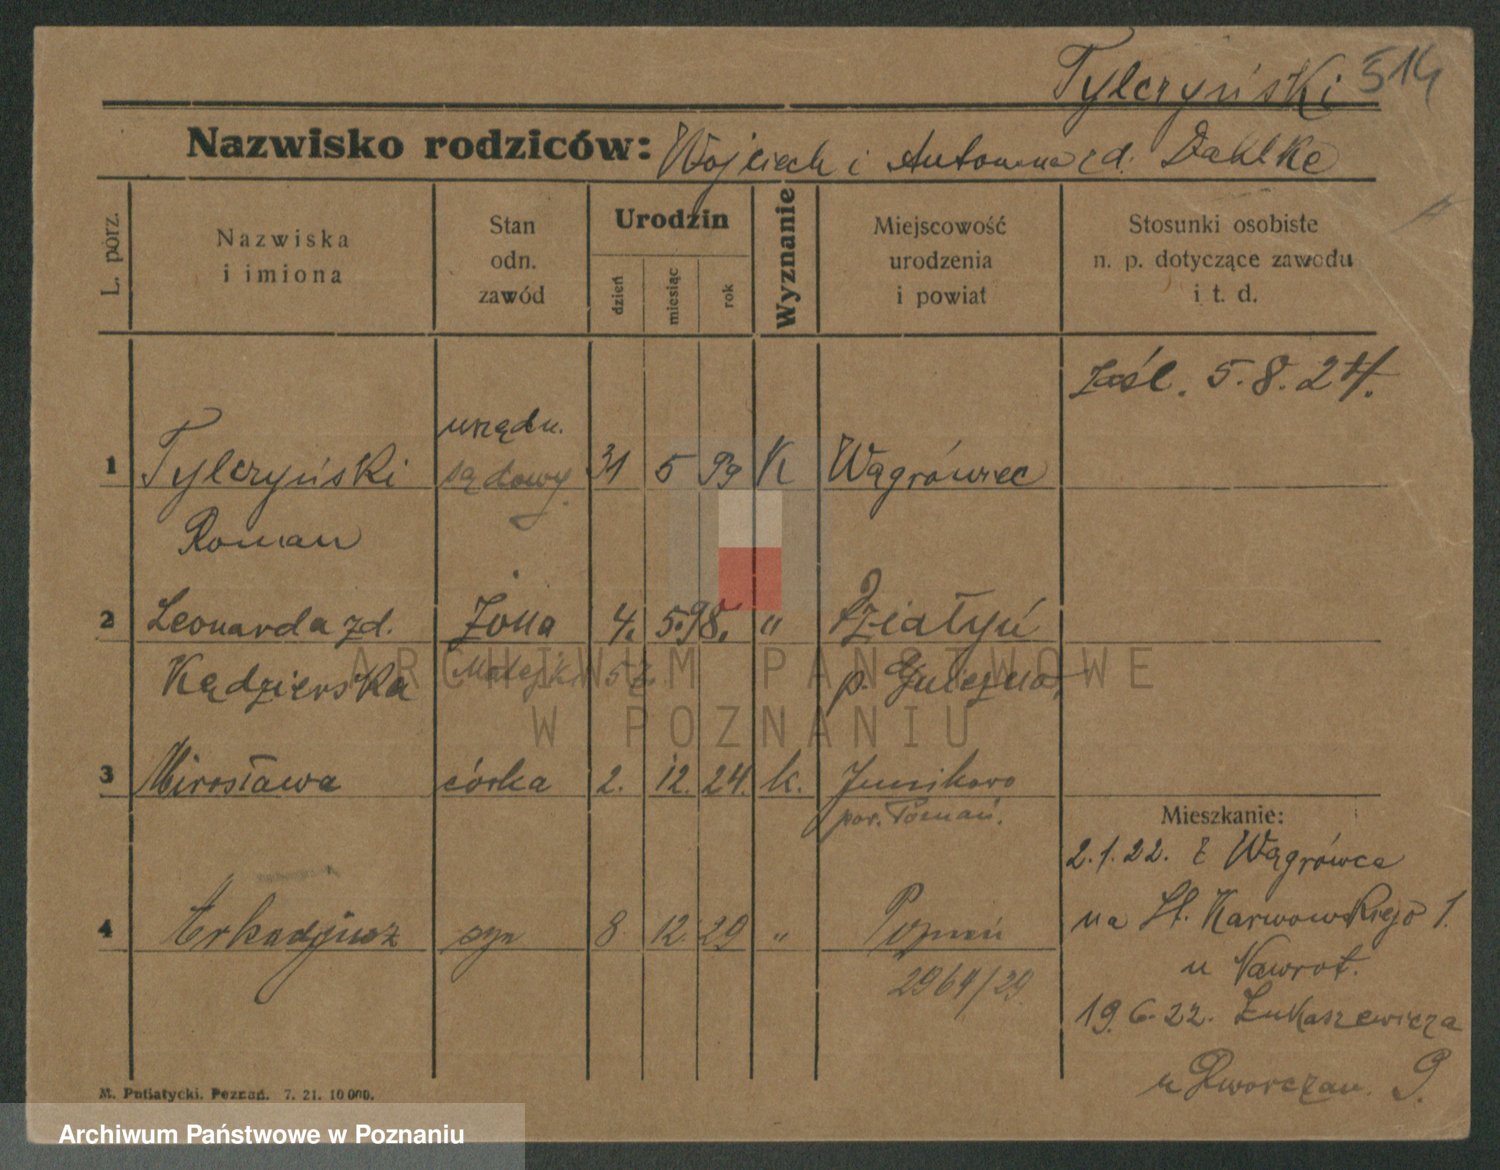 Tylczyński 514
Nazwisko rodziców: Wojciech i Antonina zd. Dahlke
L. porz.
Nazwiska
i imiona
Stan
odn.
zawód
Urodzin
dzień
miesiąc
rok
Wyznanie
Miejscowość
urodzenia
i powiat
Stosunki osobiste
n. p. dotyczące zawodu
i t. d.
zaśl. 5.8.24.
urzędn.
1 Tylczyński sądowy 31 5 99 K Wągrówiec
Roman
2 Leonarda zd. Żona 4. 5. 98. " Działyń
Kędzierska Matejki 52 p. Gniezno
3 Mirosława córka 2. 12. 24. k. Junikowo
pow. Poznań.
Mieszkanie:
2.1.22. z Wągrówca
4 Arkadjusz syn 8 12. 29 " Poznań
2964/29
na Sł. Karwowskiego 1.
u Nawrot.
19.6.22. Łukaszewicza
u Dworczan. 9.
M. Putiatycki. Poznań. 7. 21. 10000.
ARCHIWUM PAŃSTWOWE
W POZNANIU
Archiwum Państwowe w Poznaniu